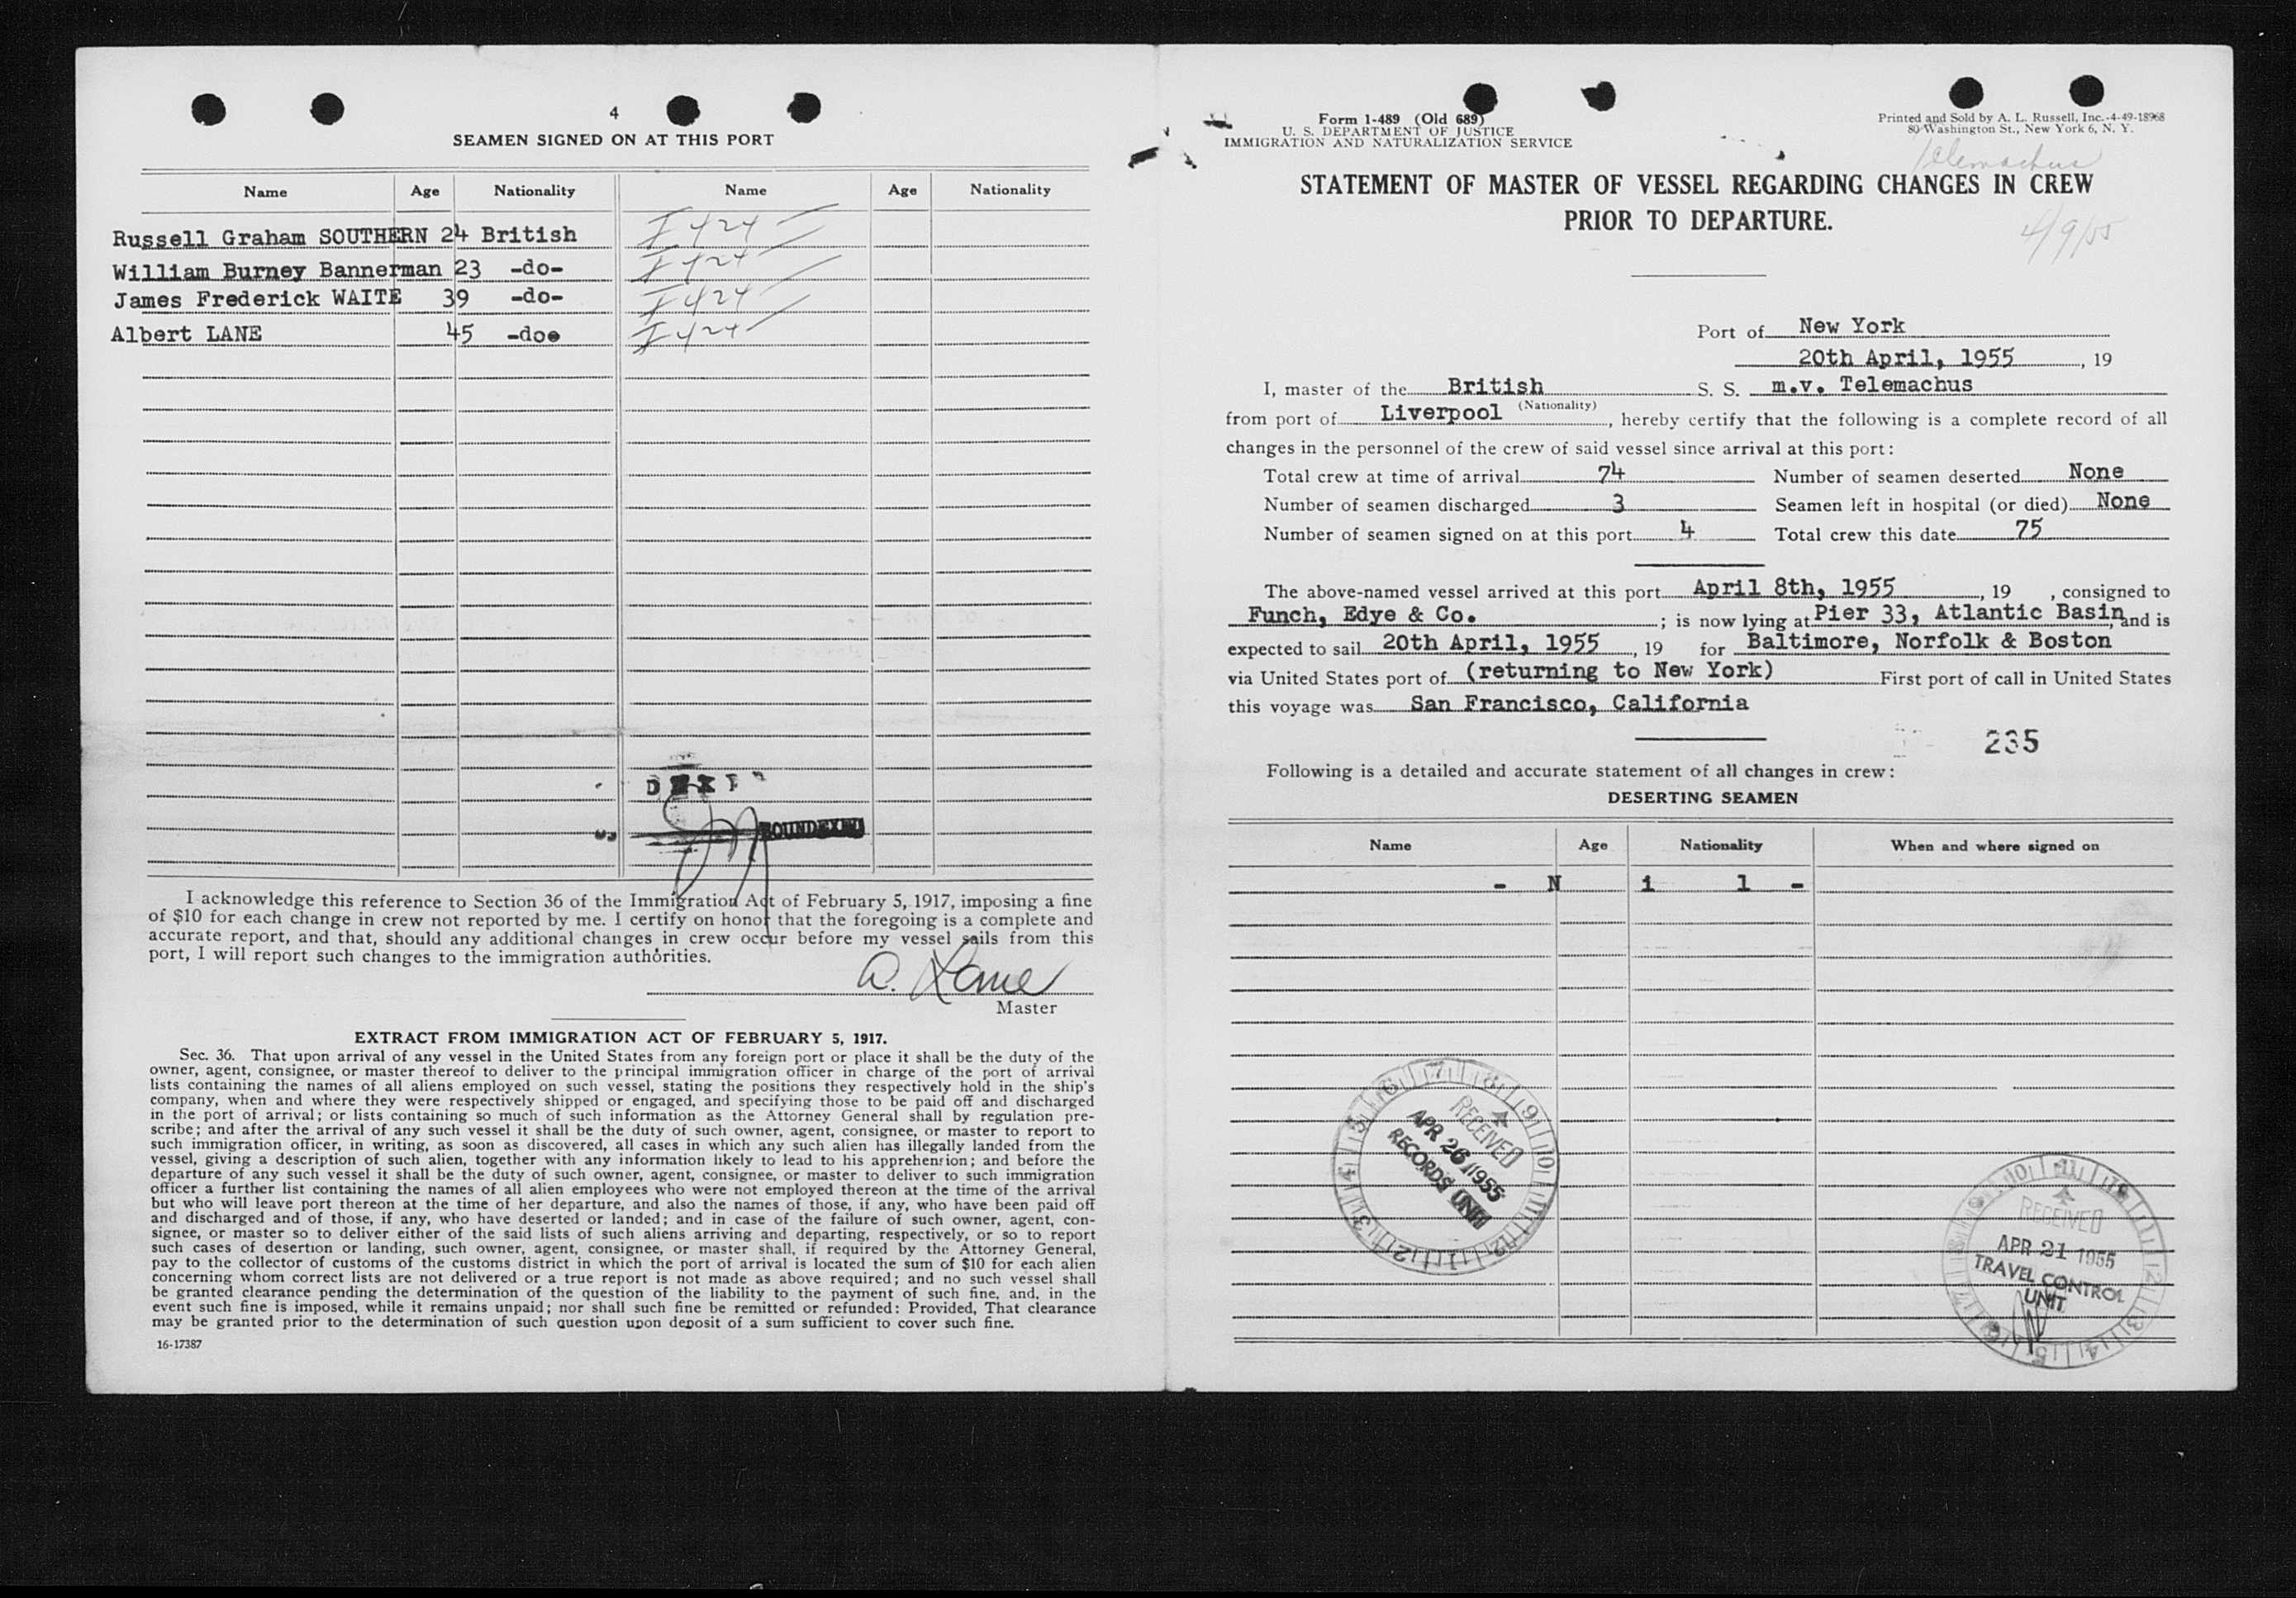 4
SEAMEN SIGNED ON AT THIS PORT
Name Age Nationality Name Age Nationality
Russell Graham SOUTHERN 24 British I 424
William Burney Bannerman 23 -do- I 424
James Frederick WAITE 39 -do- I 424
Albert LANE 45 -doe I 424
I acknowledge this reference to Section 36 of the Immigration Act of February 5, 1917, imposing a fine
of $10 for each change in crew not reported by me. I certify on honor that the foregoing is a complete and
accurate report, and that, should any additional changes in crew occur before my vessel sails from this
port, I will report such changes to the immigration authorities.
A. Lane
Master
EXTRACT FROM IMMIGRATION ACT OF FEBRUARY 5, 1917.
Sec. 36. That upon arrival of any vessel in the United States from any foreign port or place it shall be the duty of the
owner, agent, consignee, or master thereof to deliver to the principal immigration officer in charge of the port of arrival
lists containing the names of all aliens employed on such vessel, stating the positions they respectively hold in the ship's
company, when and where they were respectively shipped or engaged, and specifying those to be paid off and discharged
in the port of arrival; or lists containing so much of such information as the Attorney General shall by regulation pre-
scribe; and after the arrival of any such vessel it shall be the duty of such owner, agent, consignee, or master to report to
such immigration officer, in writing, as soon as discovered, all cases in which any such alien has illegally landed from the
vessel, giving a description of such alien, together with any information likely to lead to his apprehension; and before the
departure of any such vessel it shall be the duty of such owner, agent, consignee, or master to deliver to such immigration
officer a further list containing the names of all alien employees who were not employed thereon at the time of the arrival
but who will leave port thereon at the time of her departure, and also the names of those, if any, who have been paid off
and discharged and of those, if any, who have deserted or landed; and in case of the failure of such owner, agent, con-
signee, or master so to deliver either of the said lists of such aliens arriving and departing, respectively, or so to report
such cases of desertion or landing, such owner, agent, consignee, or master shall, if required by the Attorney General,
pay to the collector of customs of the customs district in which the port of arrival is located the sum of $10 for each alien
concerning whom correct lists are not delivered or a true report is not made as above required; and no such vessel shall
be granted clearance pending the determination of the question of the liability to the payment of such fine, and, in the
event such fine is imposed, while it remains unpaid; nor shall such fine be remitted or refunded: Provided, That clearance
may be granted prior to the determination of such question upon deposit of a sum sufficient to cover such fine.
16-17387
Form 1-489 (Old 689)
U. S. DEPARTMENT OF JUSTICE
IMMIGRATION AND NATURALIZATION SERVICE
Printed and Sold by A. L. Russell, Inc.-4-49-18968
80 Washington St., New York 6, N. Y.
Telemachus
STATEMENT OF MASTER OF VESSEL REGARDING CHANGES IN CREW
PRIOR TO DEPARTURE.
4/9/55
Port of New York
20th April, 1955, 19
I, master of the British S. S. m.v. Telemachus
(Nationality)
from port of Liverpool, hereby certify that the following is a complete record of all
changes in the personnel of the crew of said vessel since arrival at this port:
Total crew at time of arrival 74 Number of seamen deserted None
Number of seamen discharged 3 Seamen left in hospital (or died) None
Number of seamen signed on at this port 4 Total crew this date 75
The above-named vessel arrived at this port April 8th, 1955, 19 , consigned to
Funch, Edye & Co. ; is now lying at Pier 33, Atlantic Basin, and is
expected to sail 20th April, 1955, 19 for Baltimore, Norfolk & Boston
via United States port of (returning to New York) First port of call in United States
this voyage was San Francisco, California
235
Following is a detailed and accurate statement of all changes in crew:
DESERTING SEAMEN
Name Age Nationality When and where signed on
- N i l -
RECEIVED
APR 26 1955
RECORDS UNIT
RECEIVED
APR 21 1955
TRAVEL CONTROL
UNIT